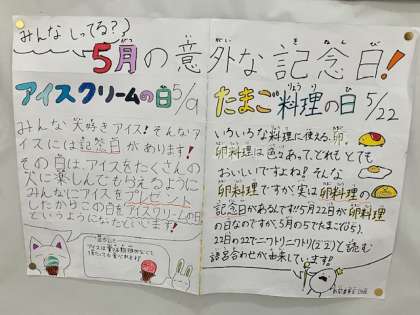 みんなしってる?
5月の意外な記念日!
アイスクリームの日5/9
みんな大好きアイス!そんなア
イスには記念日があります!
その日は、アイスをたくさんの
人に楽しんでもらえるように
みんなにアイスをプレゼント
したからこの日をアイスクリームの日
というようになったといいます!
たまご料理の日5/22
いろいろな料理に使える、卵。
卵料理は色々あって、どれもとても
おいしいですよね!そんな
卵料理ですが、実は卵料理の
記念日があるんです!!5月22日が卵料理
の日なのですが、5月の5でたまご(5)、
22日の22でニワトリニワトリ(22)と読む
語呂合わせが由来しています!